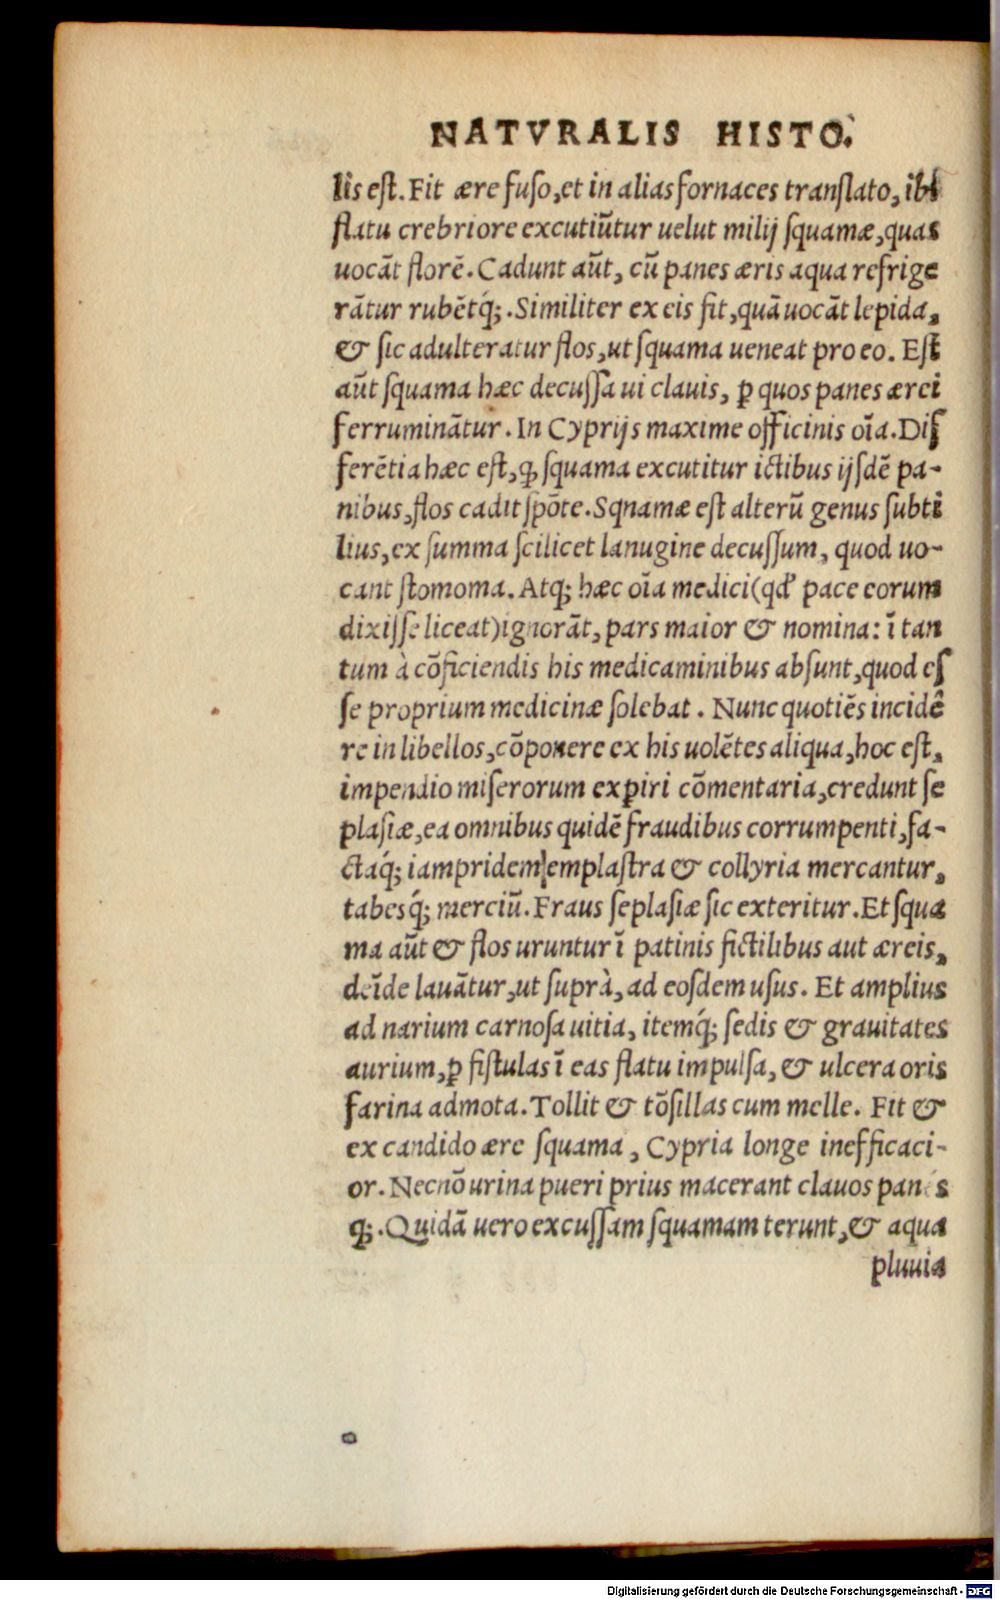 NATVRALIS HISTO.
lis eſt. Fit ære fuſo, et in alias fornaces tranſlato, ibi
flatu crebriore excutiũtur uelut milij ſquamæ, quas
uocãt florē. Cadunt aũt, cũ panes æris aqua refrige
rãtur rubētq́;. Similiter ex eis fit, quã uocãt lepida,
& ſic adulteratur flos, ut ſquama ueneat pro eo. Eſt
aũt ſquama hæc decuſſa ui clauis, ꝑ quos panes ærei
ferruminãtur. In Cyprijs maxime officinis oĩa. Diſ
ferētia hæc eſt, ꝙ ſquama excutitur ictibus ijſdē pa-
nibus, flos cadit ſpõte. Sqnamæ eſt alterũ genus ſubti
lius, ex ſumma ſcilicet lanugine decuſſum, quod uo-
cant ſtomoma. Atq; hæc oĩa medici (qd' pace eorum
dixiſſe liceat) ignorãt, pars maior & nomina: ĩ tan
tum à cõficiendis his medicaminibus abſunt, quod eſ
ſe proprium medicinæ ſolebat. Nunc quotiẽs incidē
re in libellos, cõponere ex his uolẽtes aliqua, hoc eſt,
impendio miſerorum exꝑiri cõmentaria, credunt ſe
plaſiæ, ea omnibus quidē fraudibus corrumpenti, fa-
ctaq́; iampridem emplaſtra & collyria mercantur,
tabesq́; merciũ. Fraus ſeplaſiæ ſic exteritur. Et ſqua
ma aũt & flos uruntur ĩ patinis fictilibus aut æreis,
deĩde lauãtur, ut ſuprà, ad eoſdem uſus. Et amplius
ad narium carnoſa uitia, itemq́; ſedis & grauitates
aurium, ꝑ fiſtulas ĩ eas flatu impulſa, & ulcera oris
farina admota. Tollit & tõſillas cum melle. Fit &
ex candido ære ſquama, Cypria longe inefficaci-
or. Necnõ urina pueri prius macerant clauos panes
q;. Quidã uero excuſſam ſquamam terunt, & aqua
pluuia
Digitalisierung gefördert durch die Deutsche Forschungsgemeinschaft - DFG